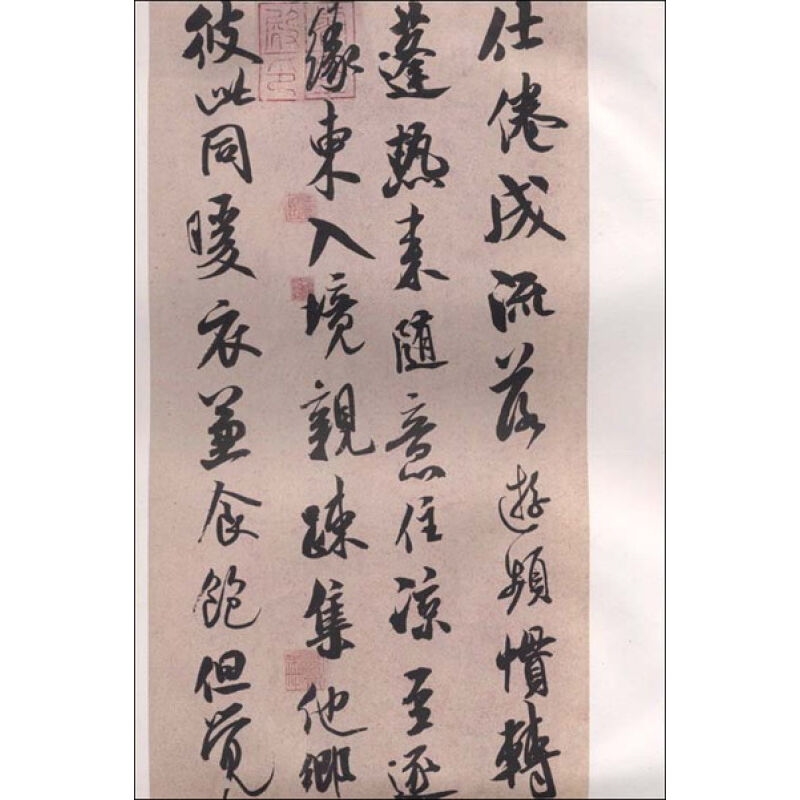 仕倦成流落遊頻慣轉
蓬熱来随意住凉至逐
緣東入境親踈集他鄉
彼此同暖衣兼食飽但覺